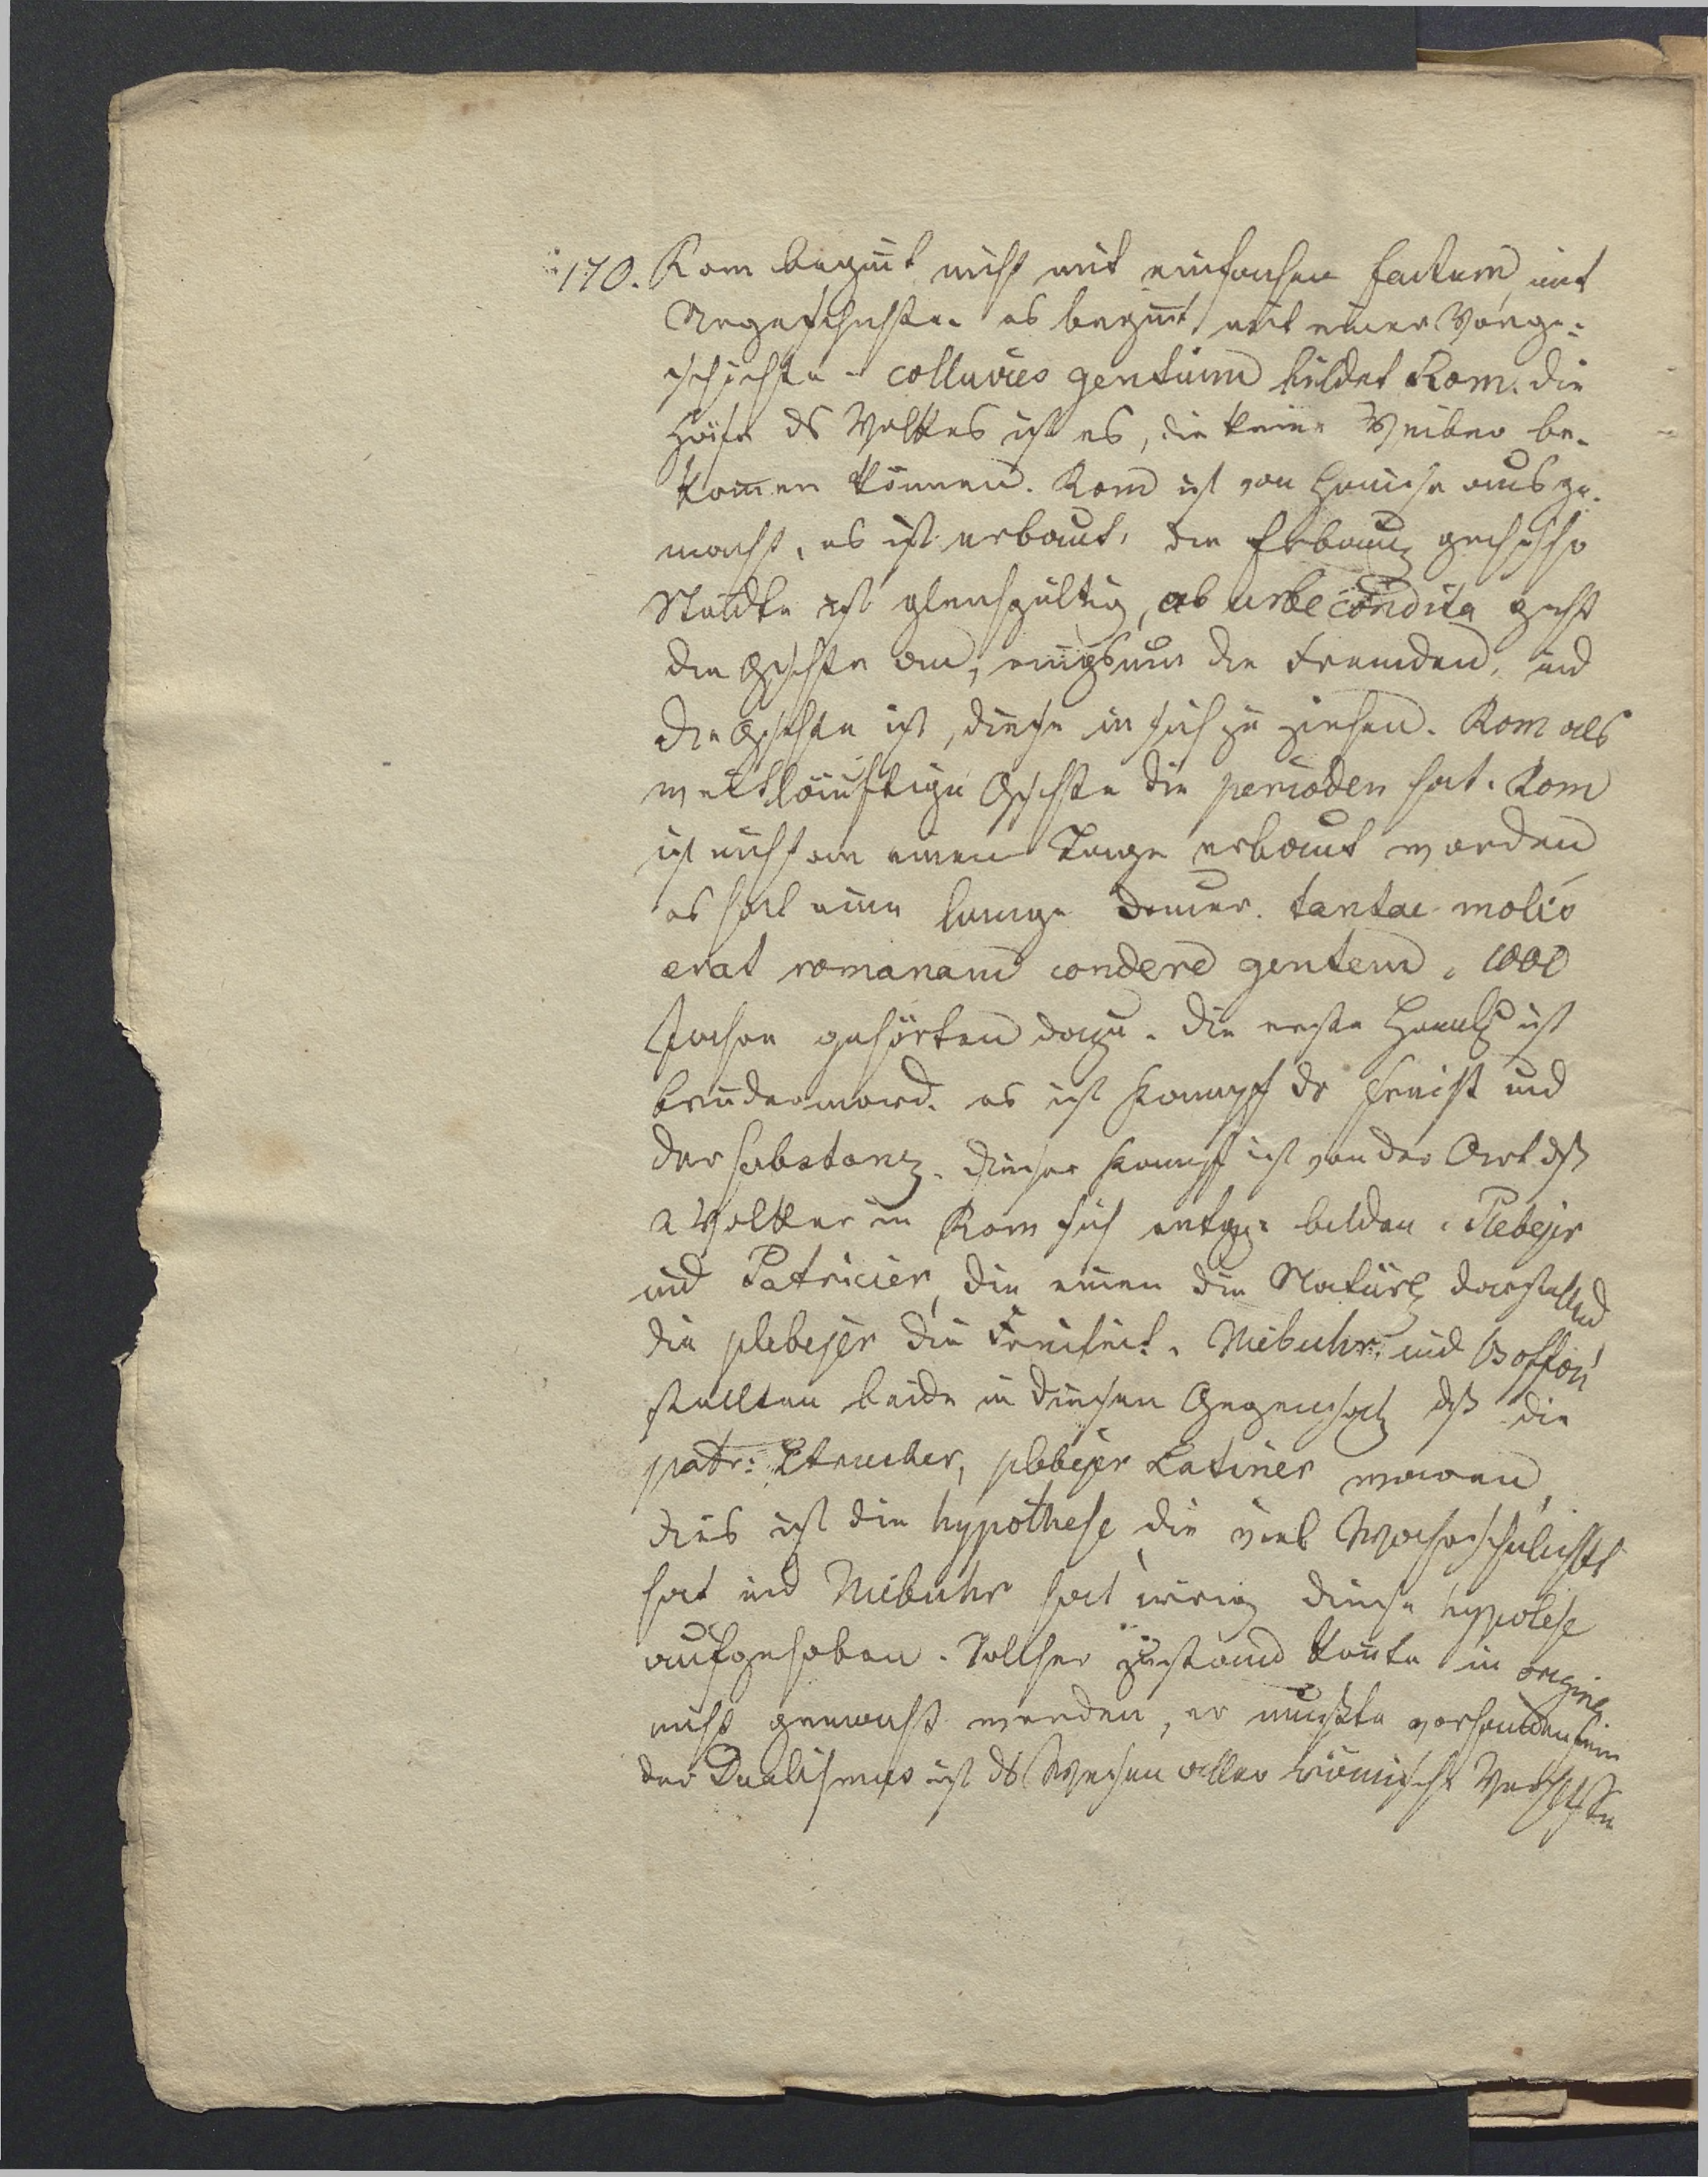 170. Rom beginnt nicht mit einfachen Factum, mit
Urgeschichte. es beginnt mit einer Vorge-
schichte - colluvies gentium bildet Rom. die
Häfe ds Volkes ist es, die keine Weiber be-
kommen können. Rom ist von Hause aus ge-
macht, es ist erbaut. die Erbauung
Städte ist gleichgültig, ab urbe condita geht
die Gschte an, ringsum die Fremden, und
die Gschte ist, diese in sich zu ziehen. Rom als
weitläuftige Gschte die perioden hat. Rom
ist nicht an einem Tage erbaut worden
es hat eine lange Dauer. tantae molis
erat romanam condere gentem. 1000
Jahre gehörten dazu. die erste Handlg ist
brudermord. es ist Kampf dr Freiht und
der Substanz. dieser Kampf ist von der Art dß
2 Völker in Rom sich entgg: bilden. Plebejer
und Patricier, die einen die Natürl darstellend
die plebejer die Freiheit. Niebuhr. und
stellten beide in diesen Gegensatz dß die
patr: Etrusker, plebejer Latiner waren,
dies ist die hypothese die viel Wahrscheinlichkt
hat und Niebuhr hat irrig diese hypotese
aufgehoben. Solcher Zustand konnte in origine
nicht gemacht werden, er mußte vorhanden sein
der Dualismus ist ds Wesen aller römischen